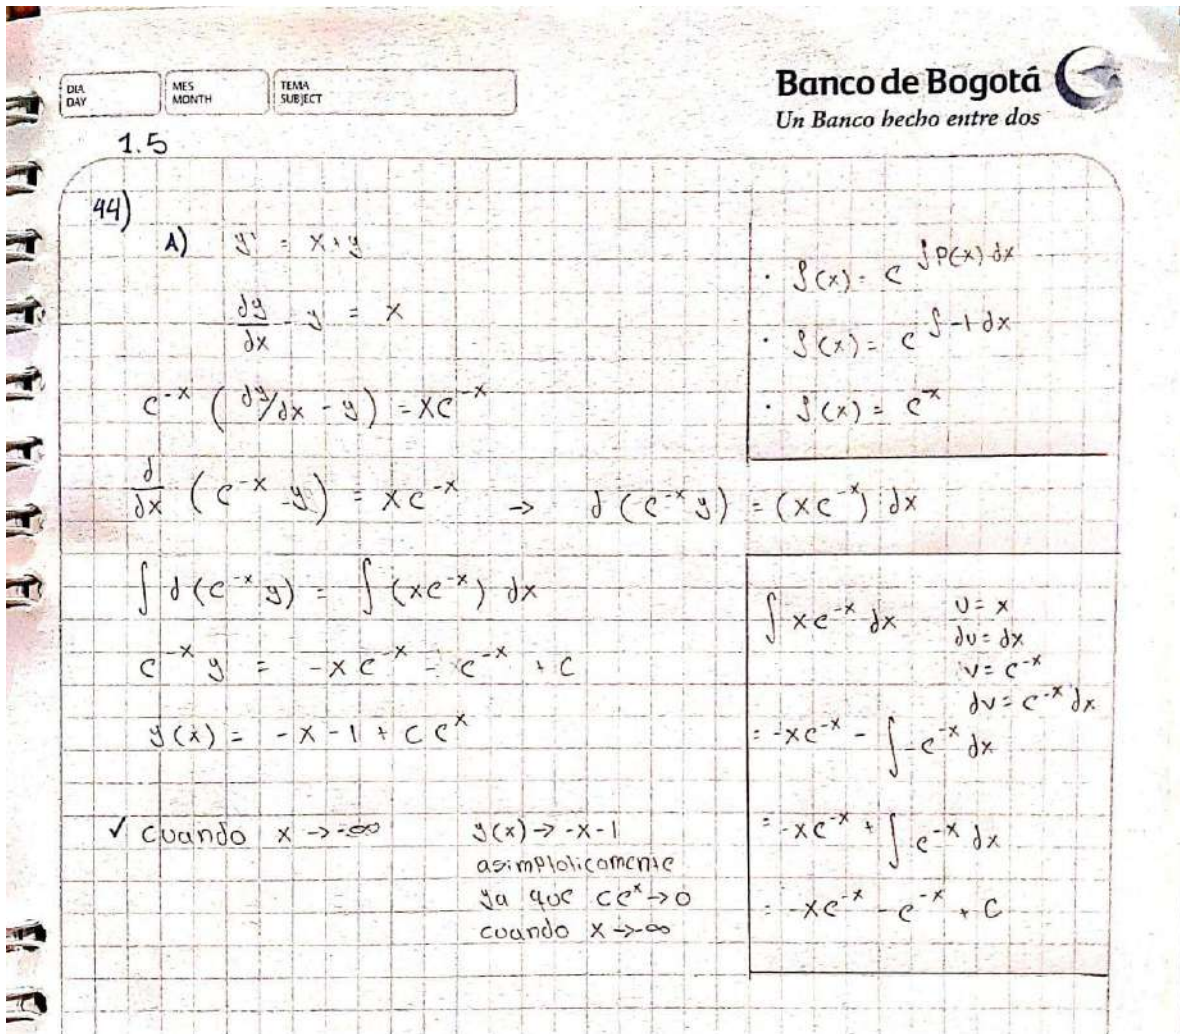 DIA
DAY
MES
MONTH
TEMA
SUBJECT
Banco de Bogotá
Un Banco hecho entre dos
1.5
44)
A) y' = x+y
dy/dx - y = x
e^-x (dy/dx - y) = xe^-x
d/dx (e^-x y) = xe^-x → d(e^-x y) = (xe^-x) dx
∫ d(e^-x y) = ∫ (xe^-x) dx
e^-x y = -xe^-x - e^-x + C
y(x) = -x - 1 + Ce^x
✓ cuando x → -∞
y(x) → -x-1
asimptoticamente
ya que ce^x → 0
cuando x → -∞
· ρ(x) = e^∫P(x) dx
· ρ(x) = e^∫-1 dx
· ρ(x) = e^-x
∫ xe^-x dx
u = x
du = dx
v = e^-x
dv = e^-x dx
= -xe^-x - ∫ -e^-x dx
= -xe^-x + ∫ e^-x dx
= -xe^-x - e^-x + C